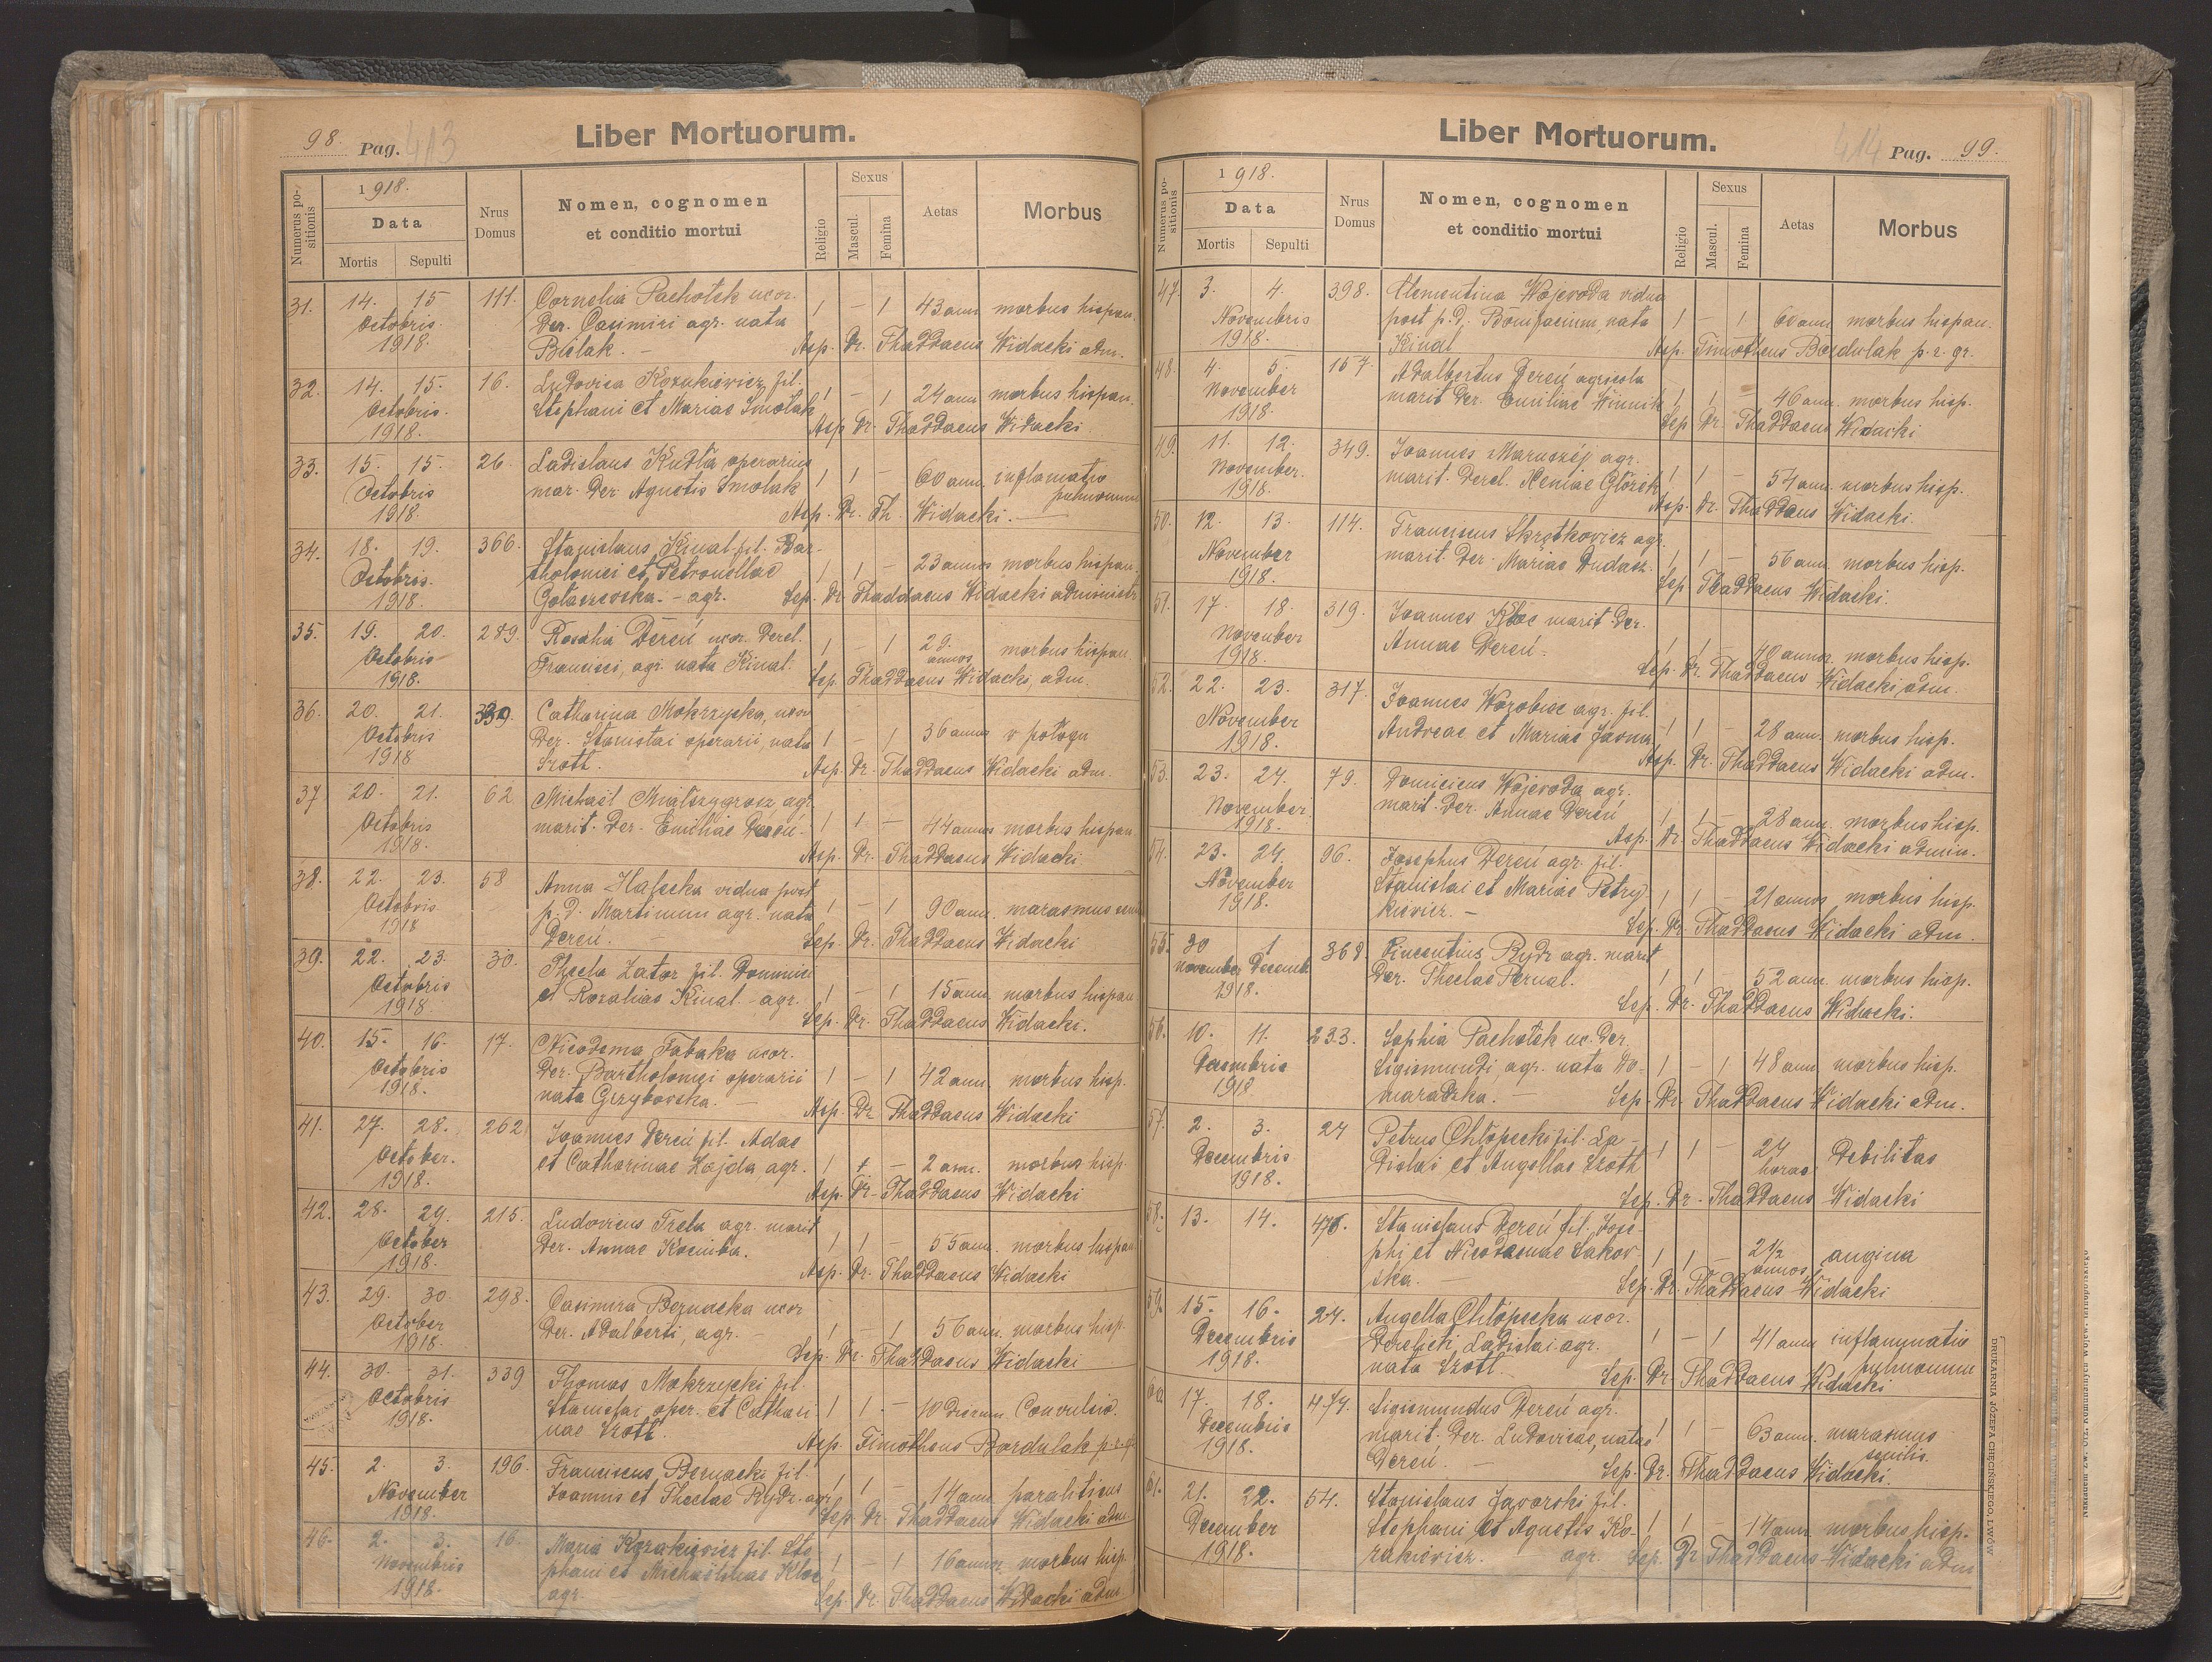 98. Pag. 413
Liber Mortuorum.
Numerus positionis
1918.
Data
Mortis Sepulti
Nrus Domus
Nomen, cognomen
et conditio mortui
Religio
Sexus
Mascul.
Femina
Aetas
Morbus
31. 14. 15 111. Cornelia Pachotek uxor.
Octobris. Der. Casimiri agr. nata 1 - 1 43 ann morbus hispan.
1918. Bielak. - Asp. Dr. Thaddaeus Widacki adm.
32. 14. 15. 16. Ludovica Kozakiewicz, fil.
Octobris. Stephani et Marias Smolak 1 - 1 24 ann morbus hispan.
1918. Asp. Dr. Thaddaeus Widacki
33. 15. 15. 26. Ladislaus Kudła operarius
Octobris mar. Der. Agnetis Smolak 1 1 - 60 ann. inflamatio pulmonum
1918. Asp. Dr. Th. Widacki. -
34. 18. 19. 366. Stanislaus Kinal fil. Bar-
Octobris. tholomei et Petronellae 1 1 - 23 annos morbus hispan.
1918. Golaszevska. - agr. Sep. Dr. Thaddaeus Widacki administr
35. 19. 20. 289. Rosalia Dereń uxor. Derel.
Octobris Francisci, agr. nata Kinal. 1 - 1 29. annos morbus hispan.
1918. Sep. Thaddaeus Widacki, adm.
36. 20. 21. 339. Catharina Mokrzycka, uxor
Octobris Der. Stanislai operarii, nata 1 - 1 36 annos v połogu
1918 Szott. Asp. Dr. Thaddaeus Widacki adm.
37 20. 21. 62 Michaël Miałszygrosz agr.
Octobris marit. Der. Emiliae Dereń. 1 1 - 44 annos morbus hispan
1918. Asp. Dr. Thaddaeus Widacki
38. 22. 23. 58 Anna Halecka vidua post
Octobris p. d. Martinum agr. nata 1 - 1 90 ann. marasmus
1918 Dereń. - Sep. Dr. Thaddaeus Widacki
39. 22. 23. 30. Thecla Zator fil. Dominici
Octobris et Rozalias Kinal - agr. 1 - 1 15 ann. morbus hispan
1918. Sep. Dr. Thaddaeus Widacki.
40. 15. 16. 17. Nicodema Tabaka uxor.
Octobris Der. Bartholomei operarii 1 - 1 42 ann. morbus hisp.
1918. nata Grzybovska. - Asp. Dr Thaddaeus Widacki
41. 27. 28. 262 Joannes Dereń fil. Adae
October. et Catharinae Zajda, agr. 1 1 - 2 ann. morbus hisp
1918. Asp. Dr. Thaddaeus Widacki
42. 28. 29. 215. Ludovicus Trela agr. marit
October Der. Annae Kocimba. 1 1 - 55 ann. morbus hispan
1918. Asp. Dr. Thaddaeus Widacki
43. 29. 30. 298. Casimira Bernacka uxor
October Der. Adalberti, agr. - 1 - 1 56 ann. morbus hisp.
1918. Sep. Dr. Thaddaeus Widacki
44. 30. 31. 339 Thomas Mokrzycki fil.
Octobris Stanislai oper. et Cathari- 1 1 - 10 dierum. Convulsio.
1918. nae Szott. Asp. Timotheus Bordulak p. r. gr
45. 2. 3. 196. Franciscus Bernacki fil.
November Joannis et Theclae Rydz. agr. 1 1 - 14 ann. paraliticus
1918. Sep. Dr. Thaddaeus Widacki adm.
46. 2. 3. 16. Maria Kozakiewicz fil. Ste-
Novembris phani et Michaëlinae Kloc 1 1 16 annor. morbus hisp.
1918. agr. Sep. Dr. Thaddaeus Widacki adm
Liber Mortuorum.
414 Pag. 99.
Numerus positionis
1918.
Data
Mortis Sepulti
Nrus Domus
Nomen, cognomen
et conditio mortui
Religio
Sexus
Mascul.
Femina
Aetas
Morbus
47. 3. 4. 398. Clementina Wojevoda vidua
Novembris post p. d. Bonifacium, nata 1 - 1 60 ann morbus hispan.
1918. Kinal Asp. Timotheus Bordulak p. r. gr.
48. 4. 5. 157. Adalbertus Dereń agricola
November marit Der. Emiliae Winnik 1 1 - 46 ann. morbus hisp.
1918. Sep Dr. Thaddaeus Widacki
49. 11. 12. 349. Joannes Maruszéj agr.
November. marit. Derel. Xeniae Glórek 1 1 - 54 ann. morbus hisp.
1918. Asp. Dr. Thaddaeus Widacki.
50. 12. 13. 114. Franciscus Skrętkovicz agr.
November marit. Der. Mariae Dudasz. 1 1 - 56 ann. morbus hisp.
1918. Sep Thaddaeus Widacki.
51. 17. 18. 319. Joannes Kloc marit. Der.
November Annae Dereń. 1 1 - 40 annor. morbus hisp.
1918. Sep. Dr. Thaddaeus Widacki, adm.
52. 22. 23. 317. Joannes Worobiec agr. fil.
November Andreae et Mariae Jasma 1 1 - 28 ann. morbus hisp.
1918. Asp. Dr. Thaddaeus Widacki adm.
53. 23. 24. 79. Dominicus Wojevoda agr.
November marit. Der. Annae Dereń 1 1 - 28 ann. morbus hisp.
1918. Asp. Dr. Thaddaeus Widacki admin.
54. 23. 24. 96. Josephus Dereń agr. fil.
November Stanislai et Mariae Petry- 1 1 - 21 annos morbus hisp.
1918. kievicz. - Sep. Dr. Thaddaeus Widacki adm.
55. 30 1 368 Vincentius Rydz agr. marit
November Decemb. Der. Theclae Pernal. 1 1 - 52 ann. morbus hisp.
1918. Sep. Dr. Thaddaeus Widacki.
56. 10. 11. 233. Sophia Pachotek ux. Der.
Decembris Sigismundi, agr. nata Do- 1 - 1 48 ann. morbus hisp.
1918 maradzka. - Sep. Dr. Thaddaeus Widacki adm.
57. 2. 3. 24 Petrus Chłopecki fil. La-
Decembris dislai et Angellae Szott 1 1 - 24 horas Debilitas
1918. Sep. Dr. Thaddaeus Widacki
58. 13. 14. 476. Stanislaus Dereń fil. Jose-
phi et Nicodemae Sakov- 1 1 - 2 1/2 annos angina
ska. - Sep. Dr. Thaddaeus Widacki
59. 15. 16. 24. Angella Chłopecka uxor.
Decembris Derelicti Ladislai agr. 1 - 1 41 ann inflammatio pulmonum
1918. nata Szott. - Sep. Dr. Thaddaeus Widacki
60 17. 18. 474. Sigismundus Dereń agr.
Decembris marit. Der. Ludovicae, natae 1 1 - 63 ann. marasmus senilis.
1918. Dereń. - Sep. Dr. Thaddaeus Widacki.
61. 21. 22. 54. Stanislaus Javorski fil.
December Stephani et Agnetis Ko- 1 1 - 14 ann. morbus hisp.
1918. zakievicz. - agr. Sep. Dr Thaddaeus Widacki adm
DRUKARNIA JÓZEFA CHĘCIŃSKIEGO, LWÓW